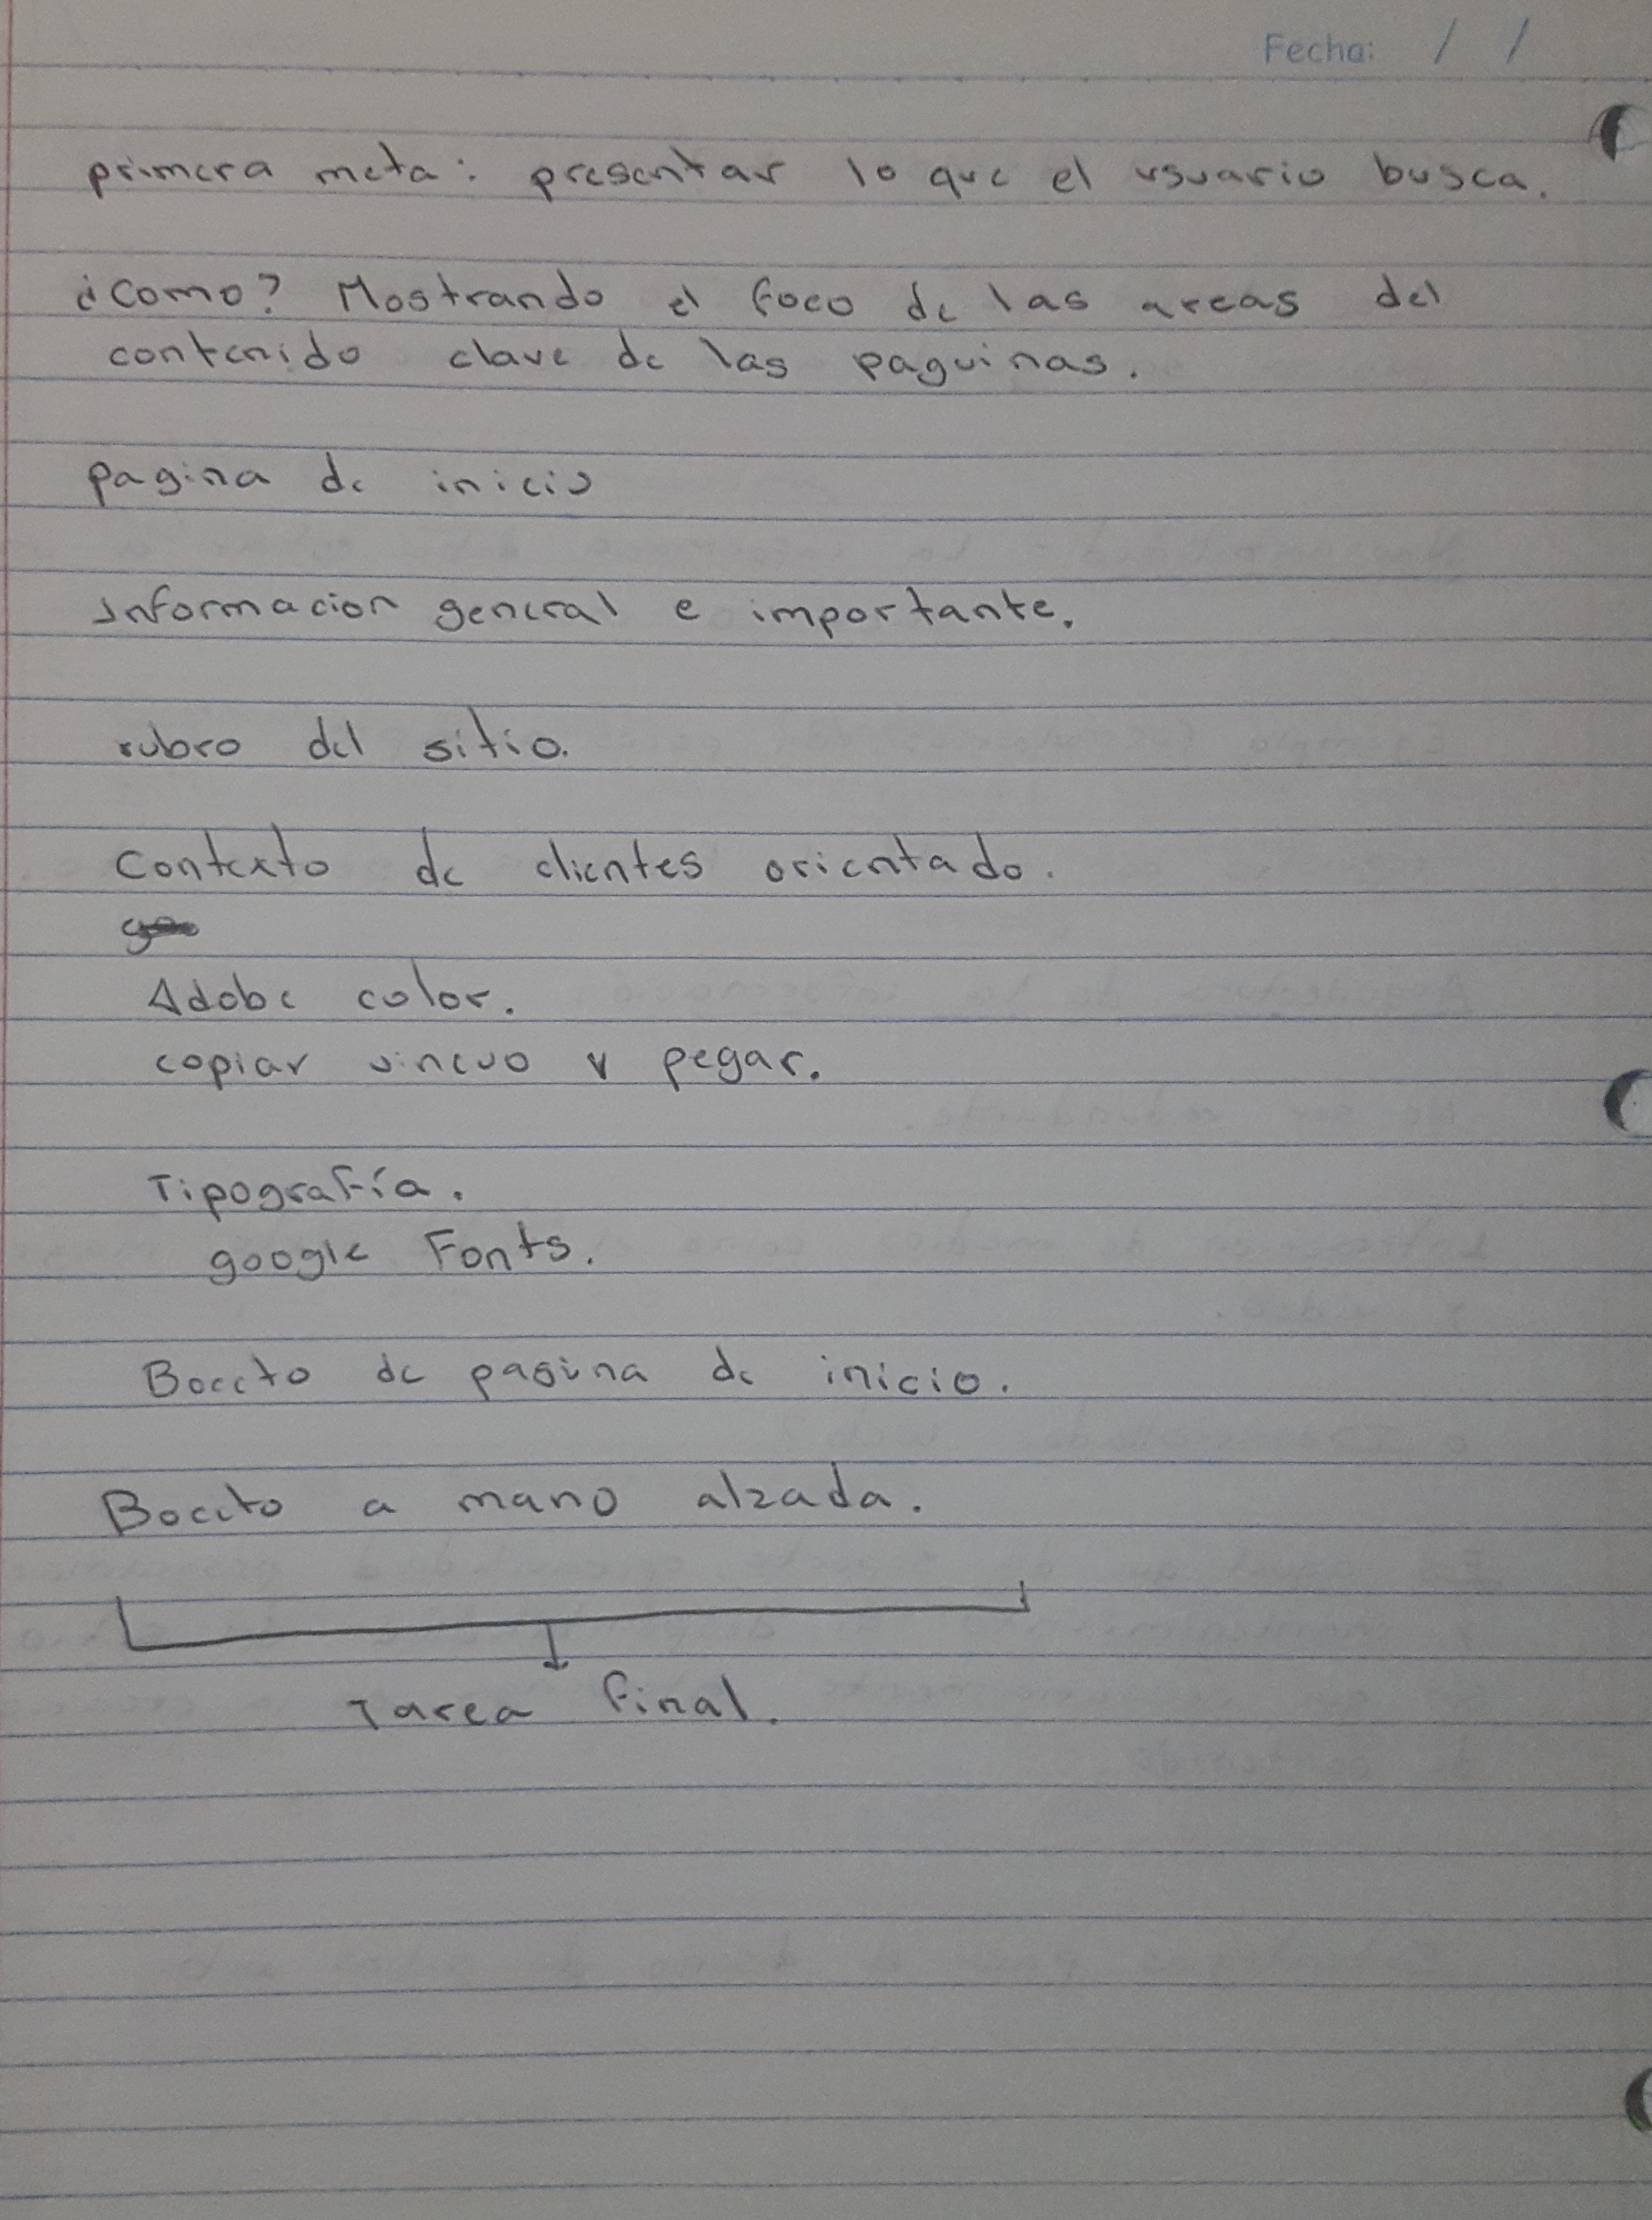 Fecha: / /
primera meta: presentar lo que el usuario busca.
¿como? Mostrando el foco de las areas del
contenido clave de las paguinas.
pagina de inicio
Informacion general e importante.
rubro del sitio.
Contexto de clientes orientado.
Adobe color.
copiar vincuo y pegar.
Tipografía.
google Fonts.
Boceto de pagina de inicio.
Boceto a mano alzada.
Tarea final.